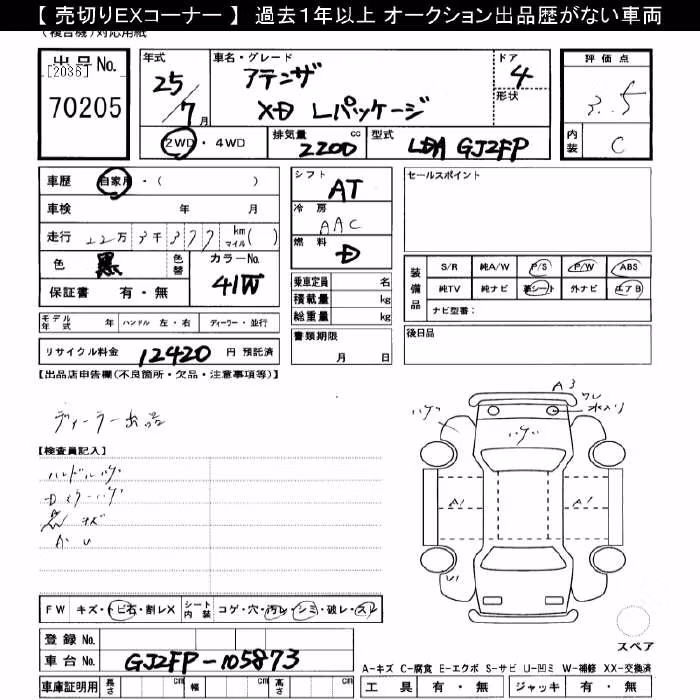 【 売切りEXコーナー 】 過去1年以上 オークション出品歴がない車両
(複合機)対応用紙
出品No. [2036] 70205
年式 25/7月
車名・グレード アテンザ XD Lパッケージ
ドア 4
形状
2WD・4WD
排気量 2200 cc
型式 LDA GJ2FP
評価点 3.5
内装 C
車歴 自家用・( )
車検 年 月
走行 22万 3千 377 km マイル( )
色 黒 色替 カラーNo. 41W
保証書 有・無
シフト AT
冷房 AAC
燃料 D
乗車定員 名
積載量 kg
総重量 kg
セールスポイント
装備品 S/R 純A/W P/S P/W ABS
純TV 純ナビ 革シート 外ナビ エアB
ナビ型番:
モデル年式 年 ハンドル 左・右 ディーラー・並行
書類期限 月 日
後日品
リサイクル料金 12420 円 預託済
【出品店申告欄(不良箇所・欠品・注意事項等)】
ディーラー出品
【検査員記入】
ハンドルハゲ
Dミラーハゲ
キズ
A・U
A3
ワレ
水入り
ハゲ
ハゲ
A1
A1
U1
FW キズ・トビ石・割レX シート内装 コゲ・穴・汚レ・シミ・破レ・スレ
登録No.
車台No. GJ2FP-105873
車庫証明用 長さ cm 幅 cm 高さ cm
スペア
A-キズ C-腐食 E-エクボ S-サビ U-凹ミ W-補修 XX-交換済
工具 有・無 ジャッキ 有・無